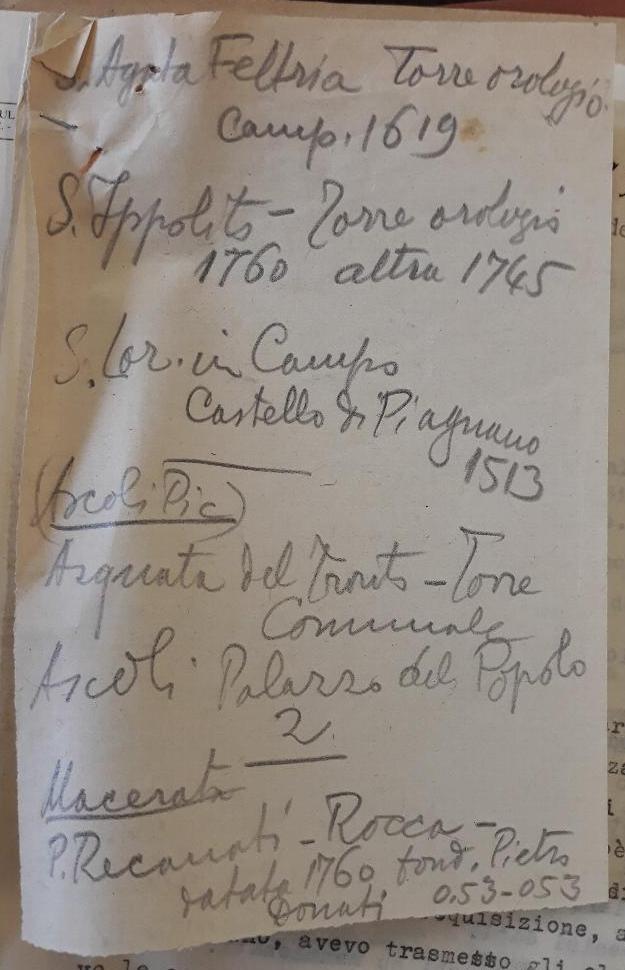 S. Agata Feltria Torre orologio
Camp. 1619
S. Ippolito - Torre orologio
1760 altra 1745
S. Lor. in Campo
Castello di Piagnano
1513
(Ascoli Pic)
Arquata del Tronto - Torre
Comunale
Ascoli Palazzo del Popolo
2
Macerata
P. Recanati - Rocca -
datata 1760 fond. Pietro
Donati 0.53-053
quisizione, a
avevo trasmesso gli